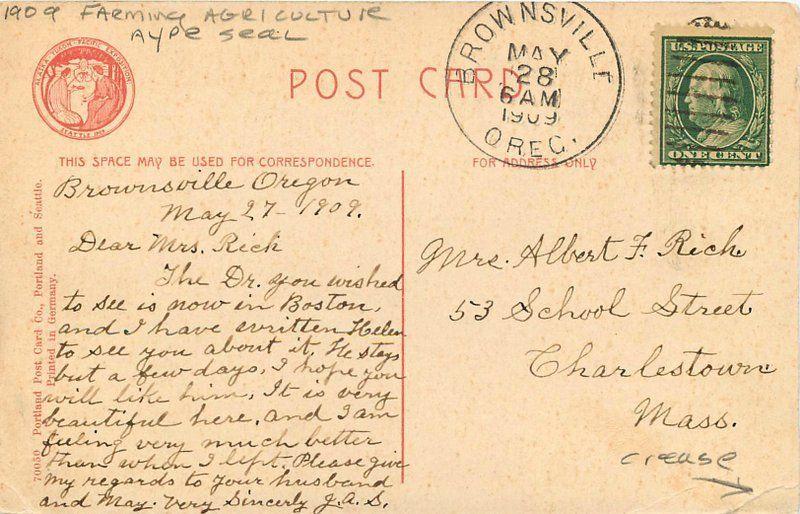 1909 FARMING AGRICULTURE
AYPE SEAL
ALASKA·YUKON·PACIFIC EXPOSITION
SEATTLE 1909
POST CARD
BROWNSVILLE
MAY
28
6 AM
1909
OREG.
U.S. POSTAGE
ONE CENT
THIS SPACE MAY BE USED FOR CORRESPONDENCE.
FOR ADDRESS ONLY
70050 Portland Post Card Co., Portland and Seattle.
Printed in Germany.
Brownsville Oregon
May 27-1909.
Dear Mrs. Rich
The Dr. you wished
to see is now in Boston,
and I have written Helen
to see you about it. He stays
but a few days, I hope you
will like him, It is very
beautiful here, and I am
feeling very much better
than when I left. Please give
my regards to your husband
and May. Very Sincerly J.A.S.
Mrs. Albert F. Rich
53 School Street
Charlestown
Mass.
crease